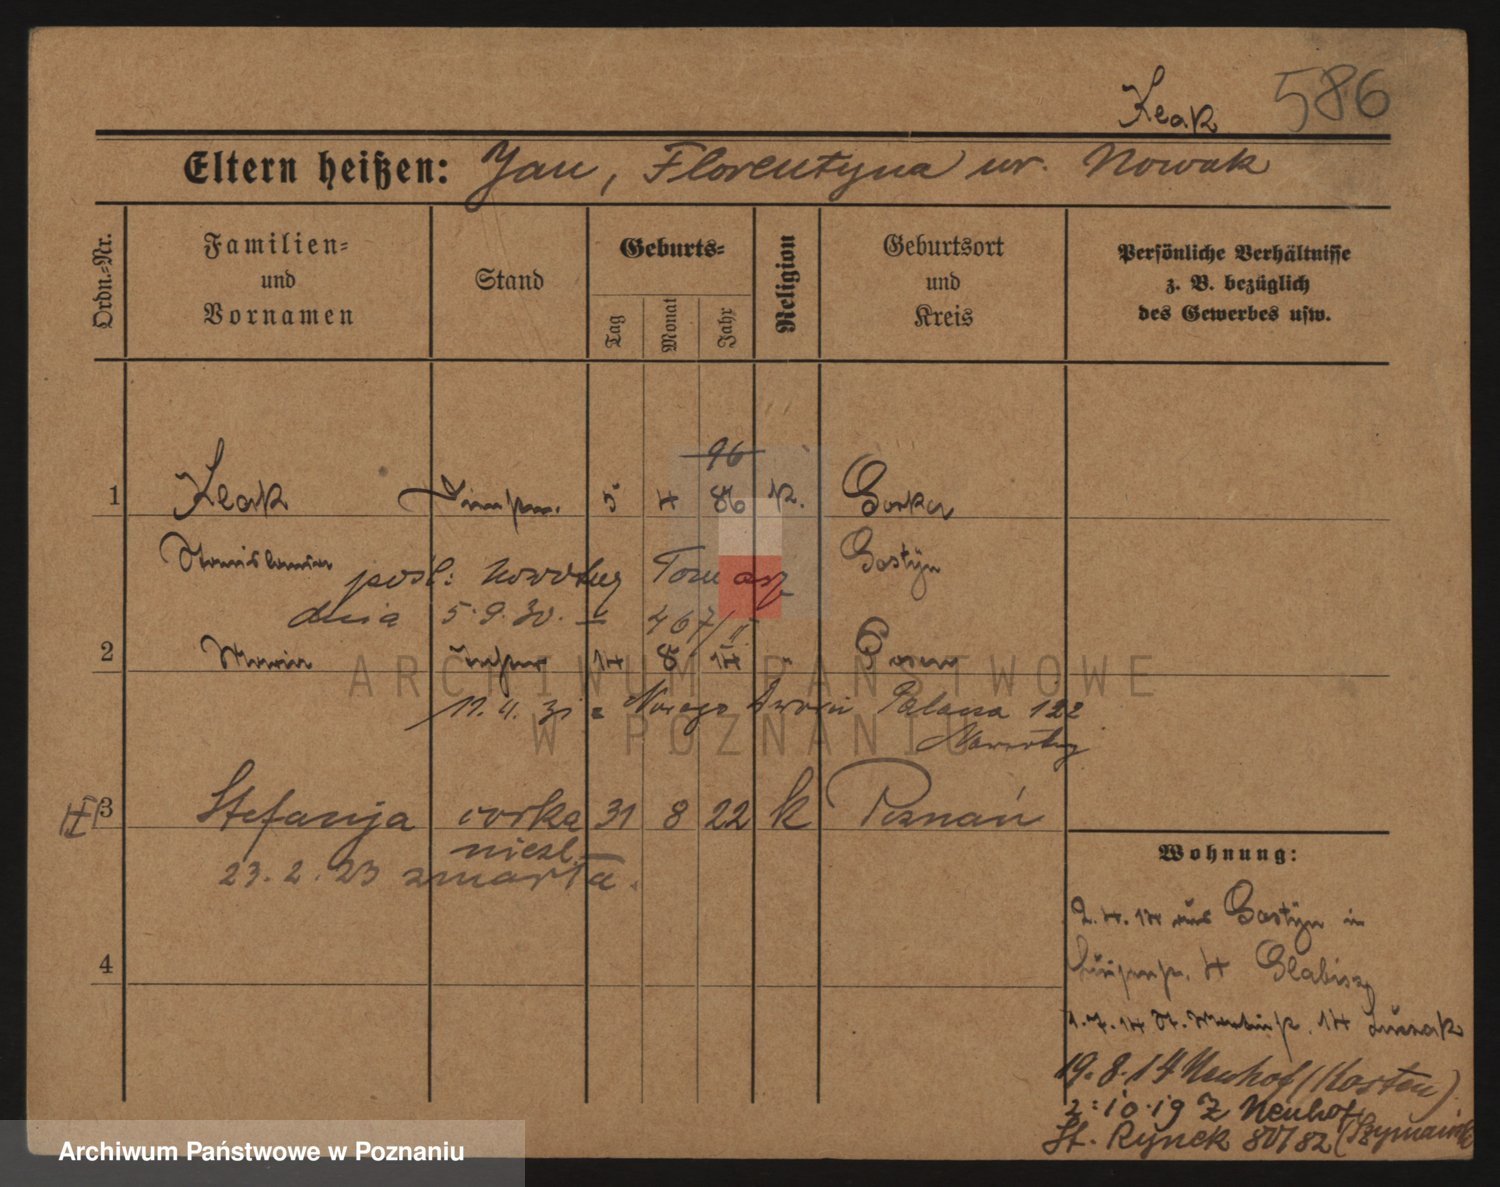 586
Klak
Eltern heißen: Jan, Florentyna ur. Nowak
Ordn.-Nr.
Familien-
und
Vornamen
Stand
Geburts-
Tag
Monat
Jahr
Religion
Geburtsort
und
Kreis
Persönliche Verhältnisse
z. B. bezüglich
des Gewerbes usw.
96
1 Klak 5 4 86 k. Gorka
Stanislawa Gostÿn
posl: Tomasz
dnia 5.9.30. 467/II.
2 Maria 14 8 14 " Posen
ARCHIWUM PAŃSTWOWE
11.4.31 122
W POZNANIU
3 Stefanja córka 31 8 22 k Poznań
nieśl.
23.2.23 zmarła.
4
Wohnung:
2.4.14 aus Gostÿn in
4 Glabisz
1.7.14 St. Martinstr. 14
19.8.14 Neuhof (Kosten)
2.10.19 z Neuhof
St. Rynek 80/82
Archiwum Państwowe w Poznaniu